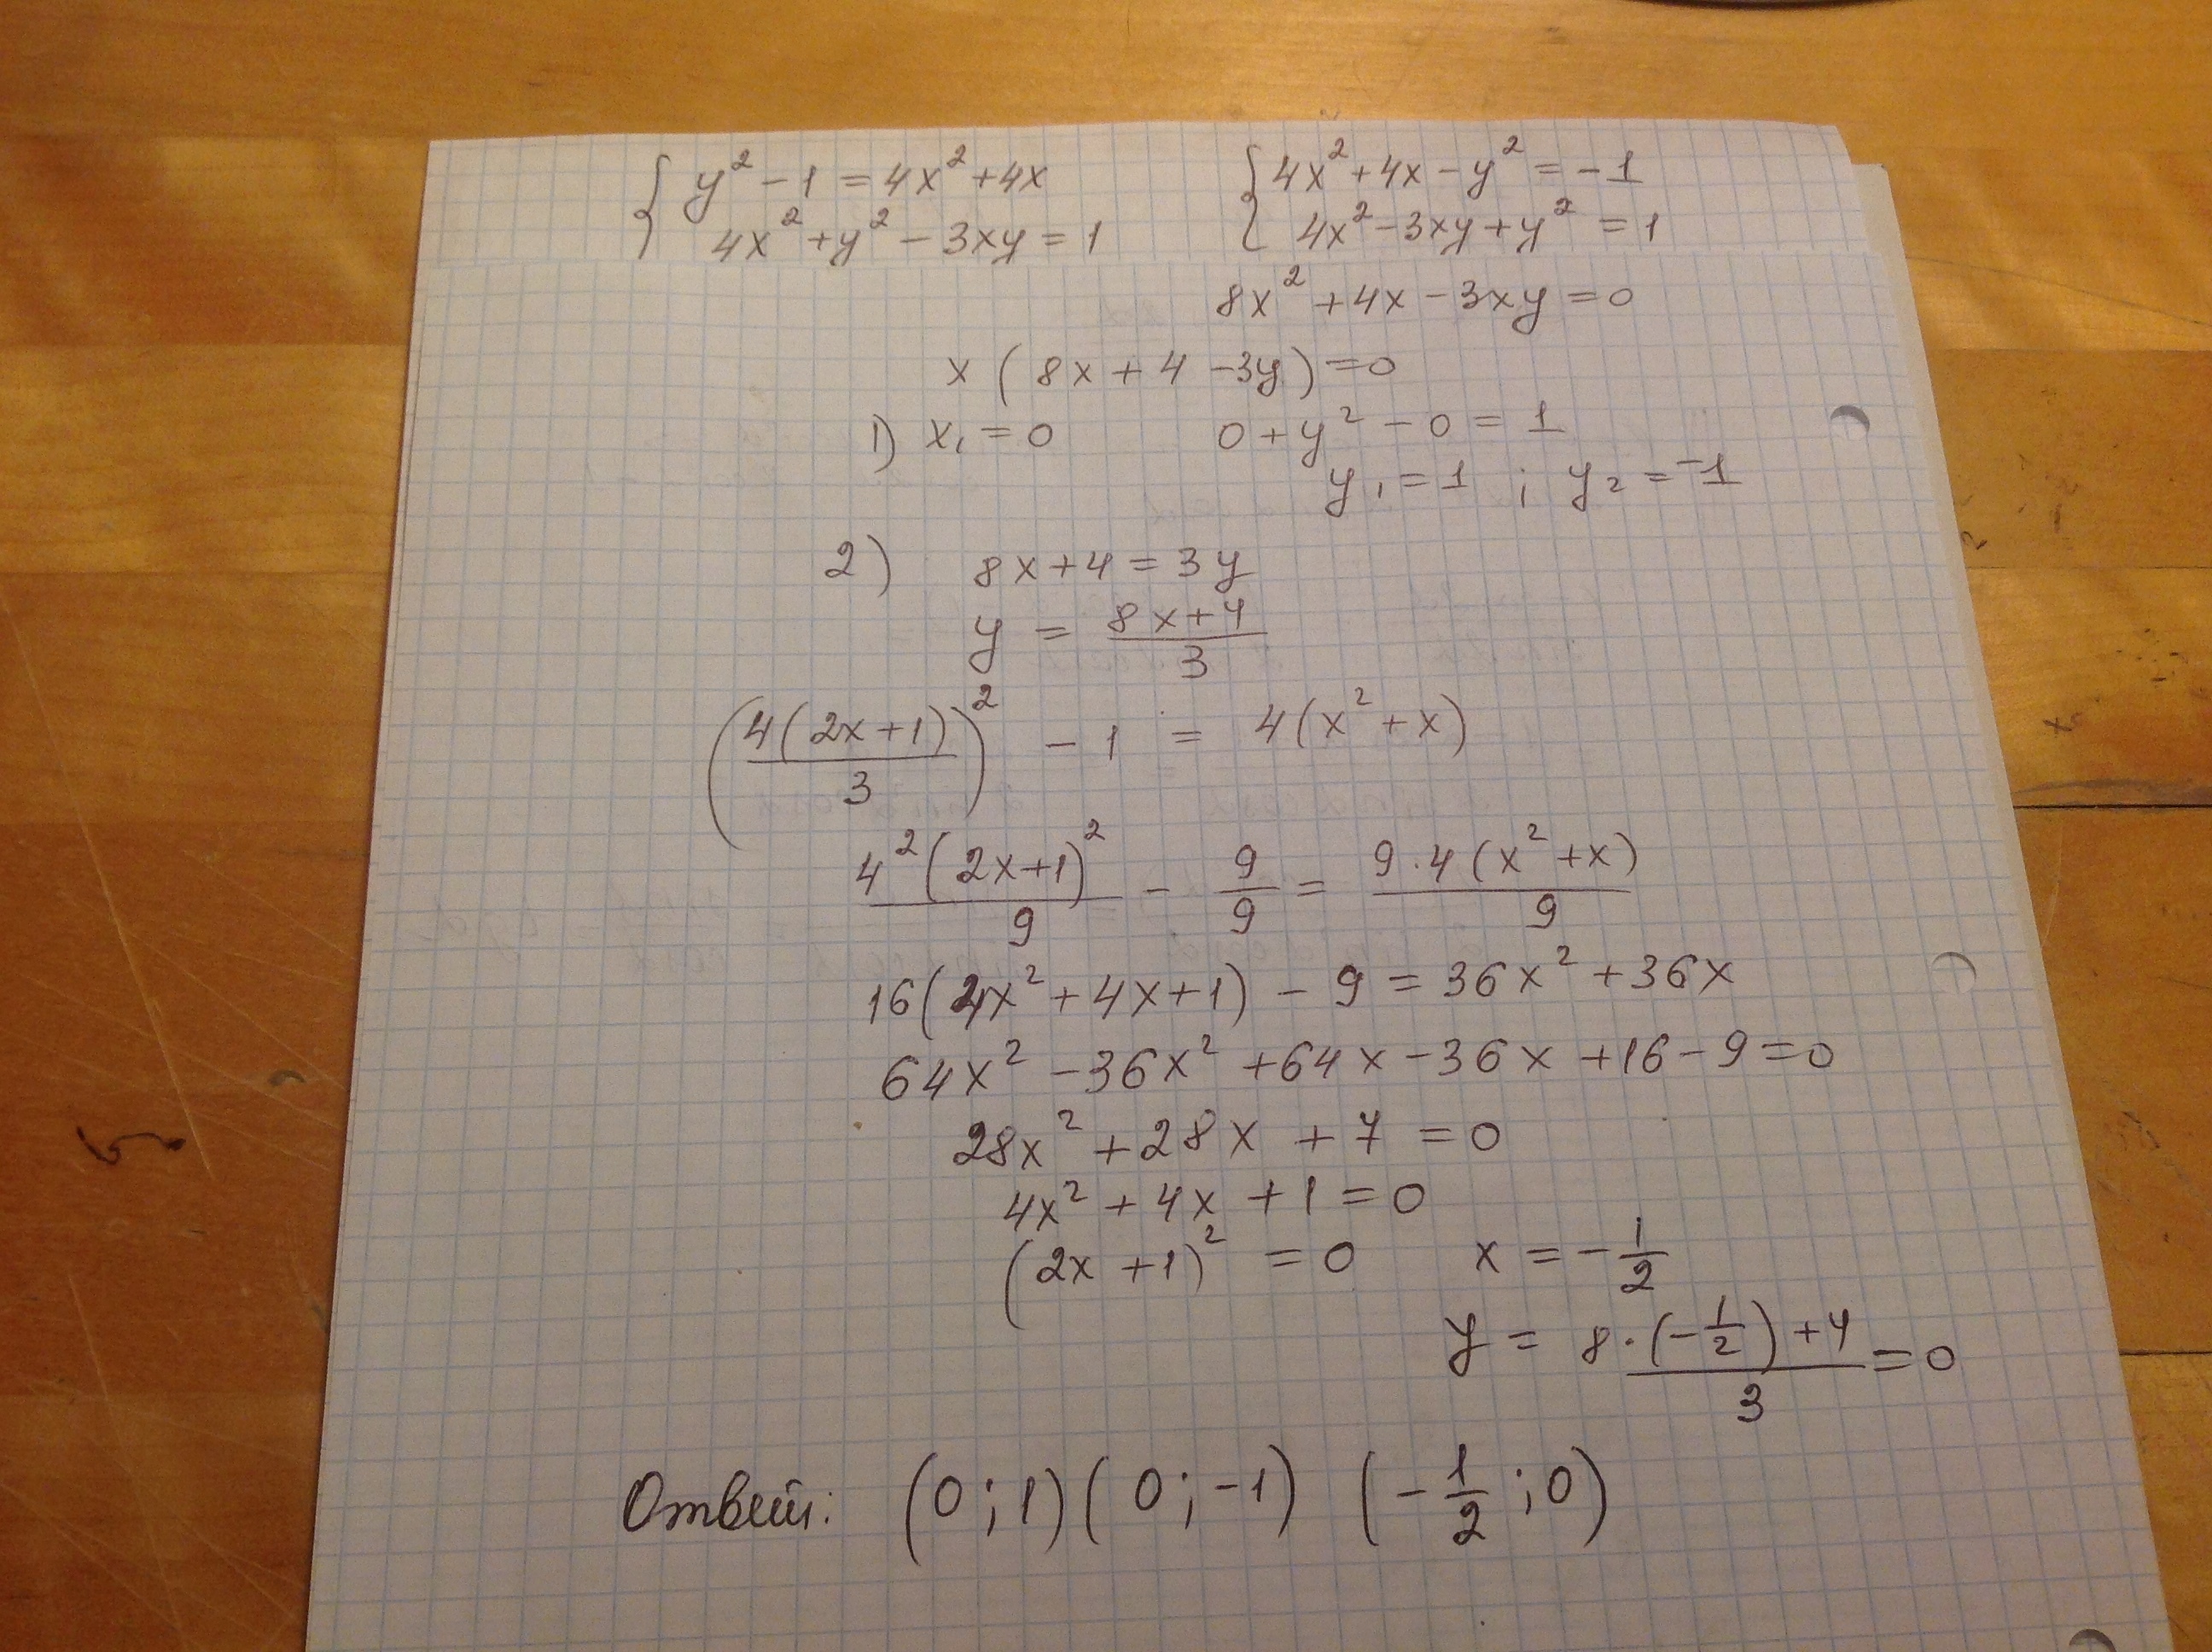 { y² - 1 = 4x² + 4x
4x² + y² - 3xy = 1
{ 4x² + 4x - y² = -1
4x² - 3xy + y² = 1
8x² + 4x - 3xy = 0
x ( 8x + 4 - 3y ) = 0
1) x₁ = 0 0 + y² - 0 = 1
y₁ = 1 ; y₂ = -1
2) 8x + 4 = 3y
y = (8x + 4)/3
(4(2x + 1)/3)² - 1 = 4(x² + x)
4²(2x + 1)²/9 - 9/9 = 9·4(x² + x)/9
16(4x² + 4x + 1) - 9 = 36x² + 36x
64x² - 36x² + 64x - 36x + 16 - 9 = 0
28x² + 28x + 7 = 0
4x² + 4x + 1 = 0
(2x + 1)² = 0 x = -1/2
y = (8·(-1/2) + 4)/3 = 0
Ответ: (0 ; 1) (0 ; -1) (-1/2 ; 0)